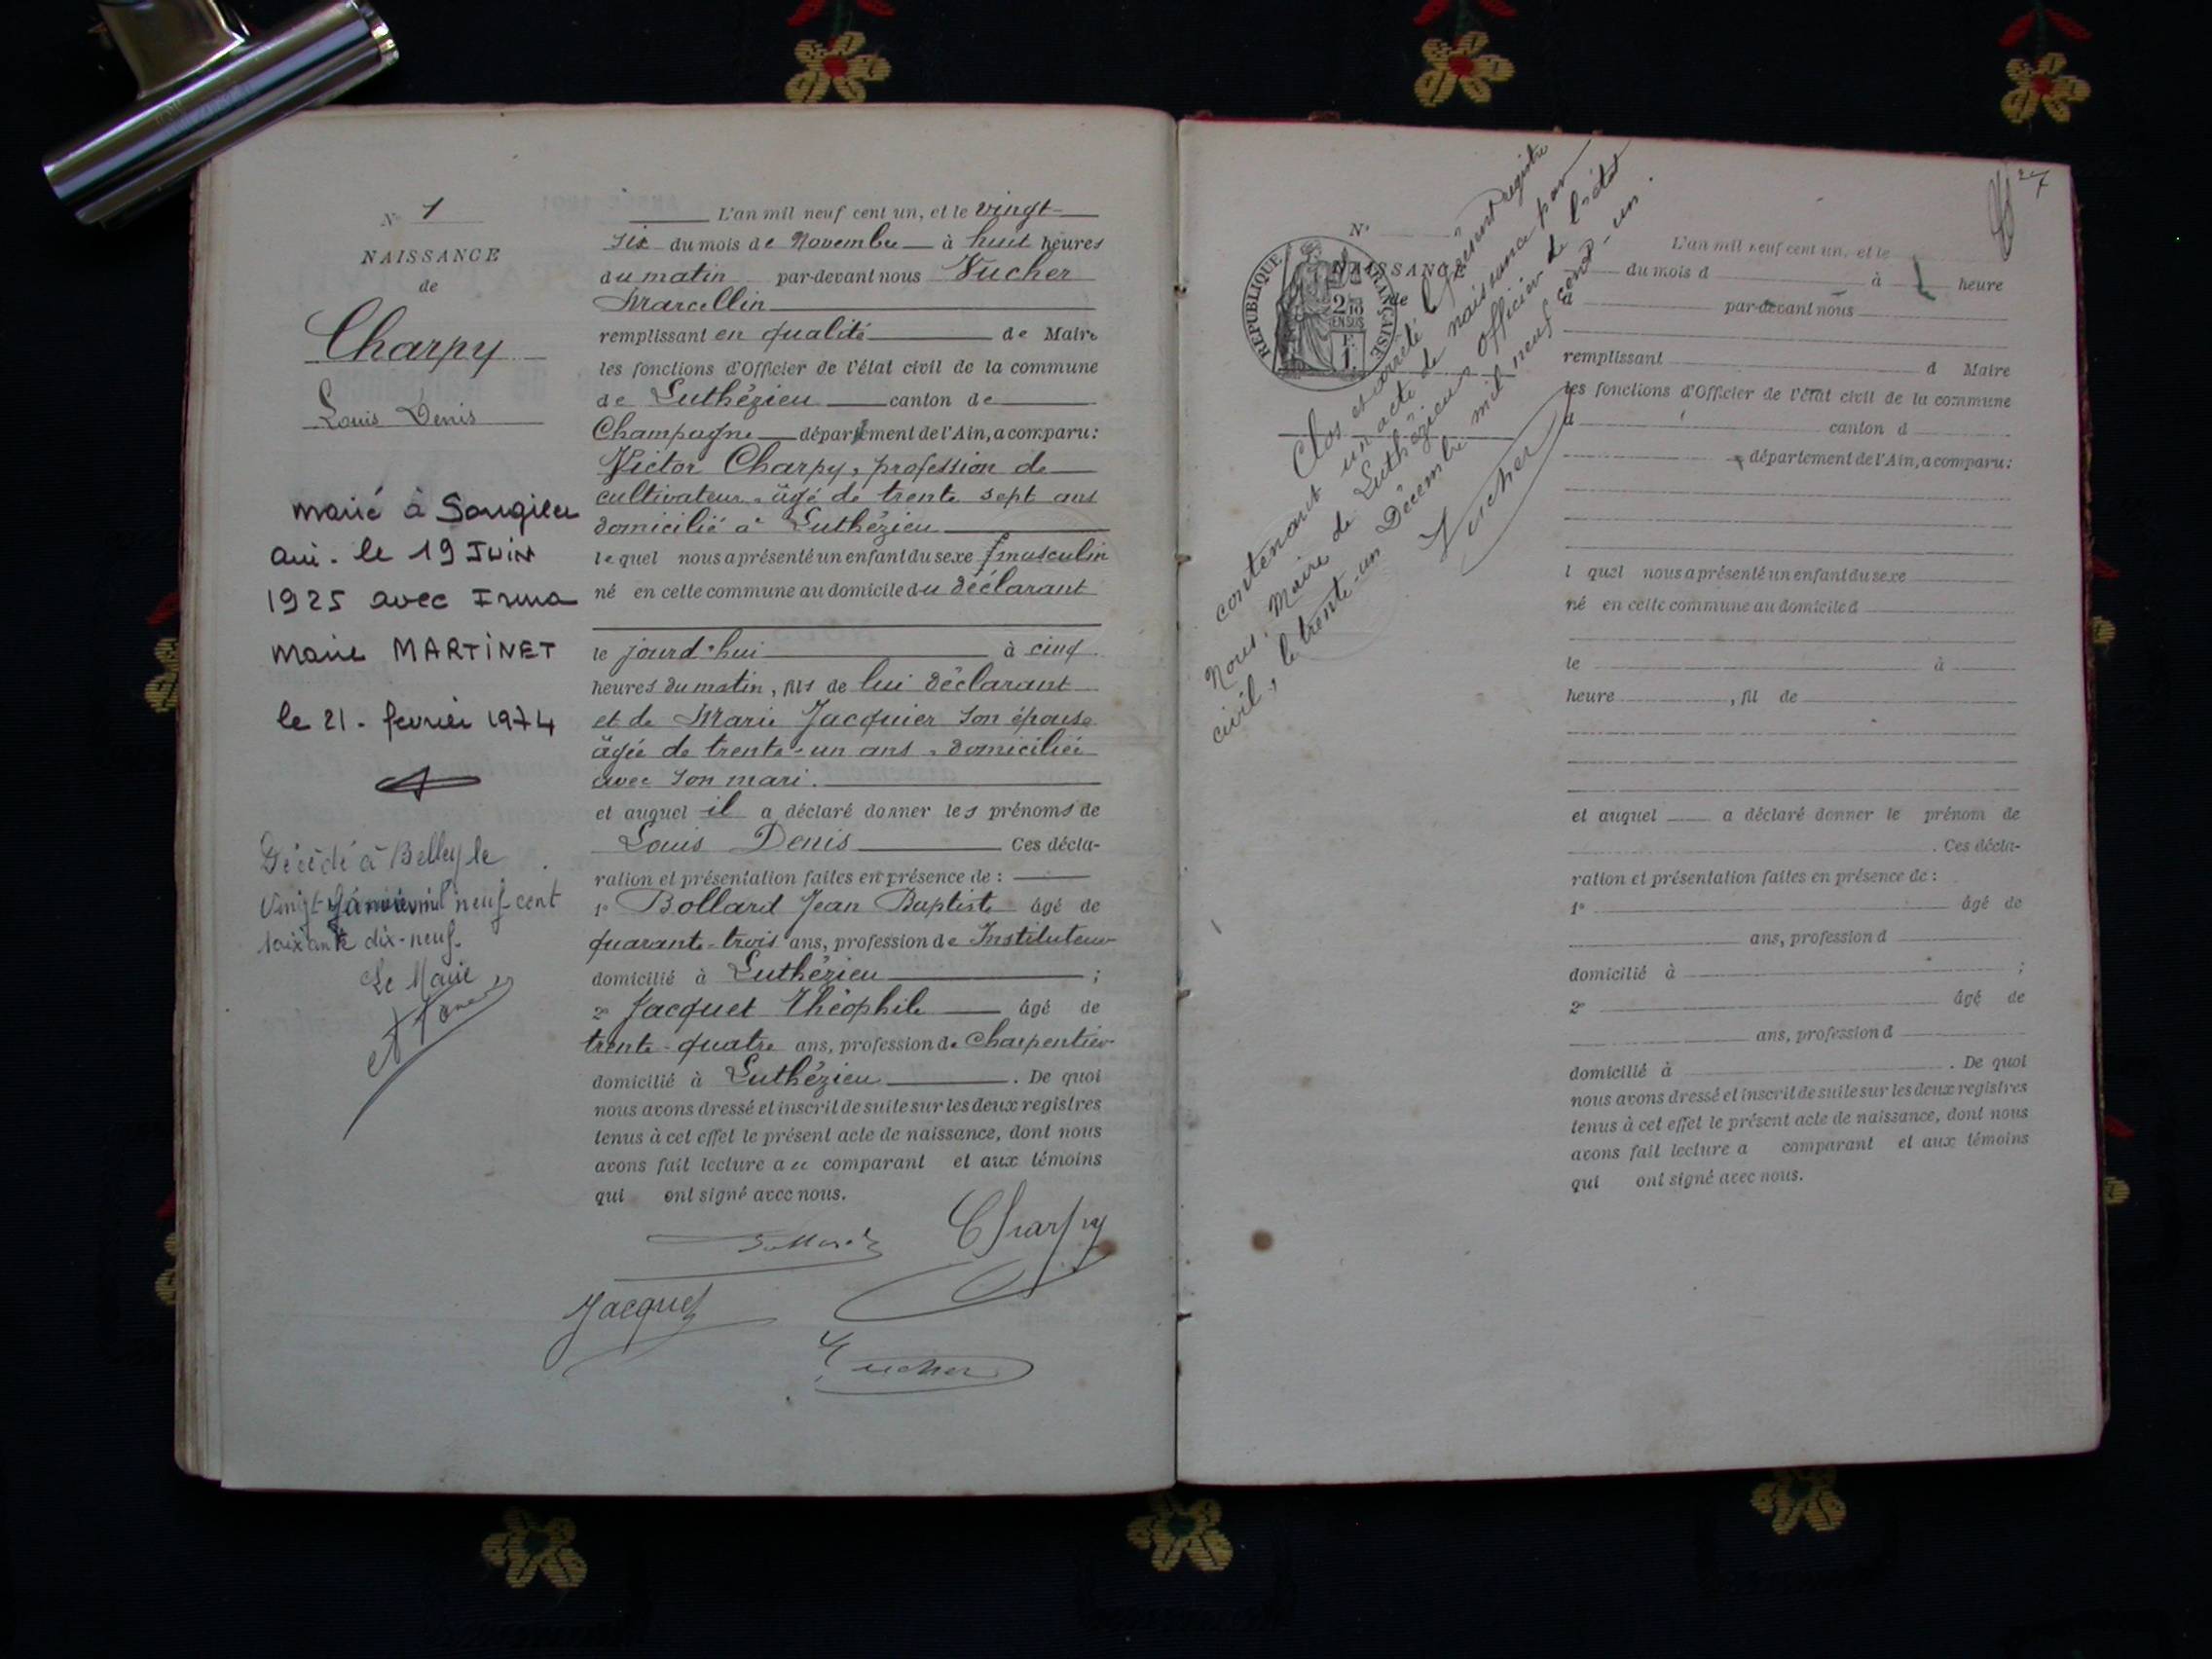 N° 1
NAISSANCE
de
Charpy
Louis Denis
marié à Songieu
Ain. le 19 JUIN
1925 avec Irma
Marie MARTINET
le 21 - février 1974
Décédé à Belley le
vingt janvier mil neuf cent
soixante dix-neuf.
Le Maire
L'an mil neuf cent un, et le vingt-
six du mois de Novembre à huit heures
du matin par-devant nous Vucher
Marcellin
remplissant en qualité de Maire
les fonctions d'Officier de l'état civil de la commune
de Luthézieu canton de
Champagne département de l'Ain, a comparu:
Victor Charpy, profession de
cultivateur, âgé de trente sept ans
domicilié à Luthézieu
lequel nous a présenté un enfant du sexe masculin
né en cette commune au domicile du déclarant
le jourd'hui à cinq
heures du matin, fils de lui déclarant
et de Marie Jacquier son épouse
âgée de trente-un ans, domiciliée
avec son mari.
et auquel il a déclaré donner les prénoms de
Louis Denis Ces décla-
ration et présentation faites en présence de :
1° Bollard Jean Baptiste âgé de
quarante-trois ans, profession de Instituteur
domicilié à Luthézieu ;
2° Jacquet Théophile âgé de
trente-quatre ans, profession de Charpentier
domicilié à Luthézieu . De quoi
nous avons dressé et inscrit de suite sur les deux registres
tenus à cet effet le présent acte de naissance, dont nous
avons fait lecture au comparant et aux témoins
qui ont signé avec nous.
Bollard Charpy
Jacquet
Vucher
27
N°
NAISSANCE
de
RÉPUBLIQUE FRANÇAISE
2/10
EN SUS
F.
1.
Clos et arrêté le présent registre
contenant un acte de naissance par
Nous, Maire de Luthézieu, officier de l'état
civil, le trente-un Décembre mil neuf cent-un.
Vucher
L'an mil neuf cent un, et le
du mois d à heure
d par-devant nous
remplissant d Maire
les fonctions d'Officier de l'état civil de la commune
d canton d
département de l'Ain, a comparu:
l quel nous a présenté un enfant du sexe
né en cette commune au domicile d
le à
heure , fil de
et auquel a déclaré donner le prénom de
. Ces décla-
ration et présentation faites en présence de :
1° âgé de
ans, profession d
domicilié à ;
2° âgé de
ans, profession d
domicilié à . De quoi
nous avons dressé et inscrit de suite sur les deux registres
tenus à cet effet le présent acte de naissance, dont nous
avons fait lecture a comparant et aux témoins
qui ont signé avec nous.